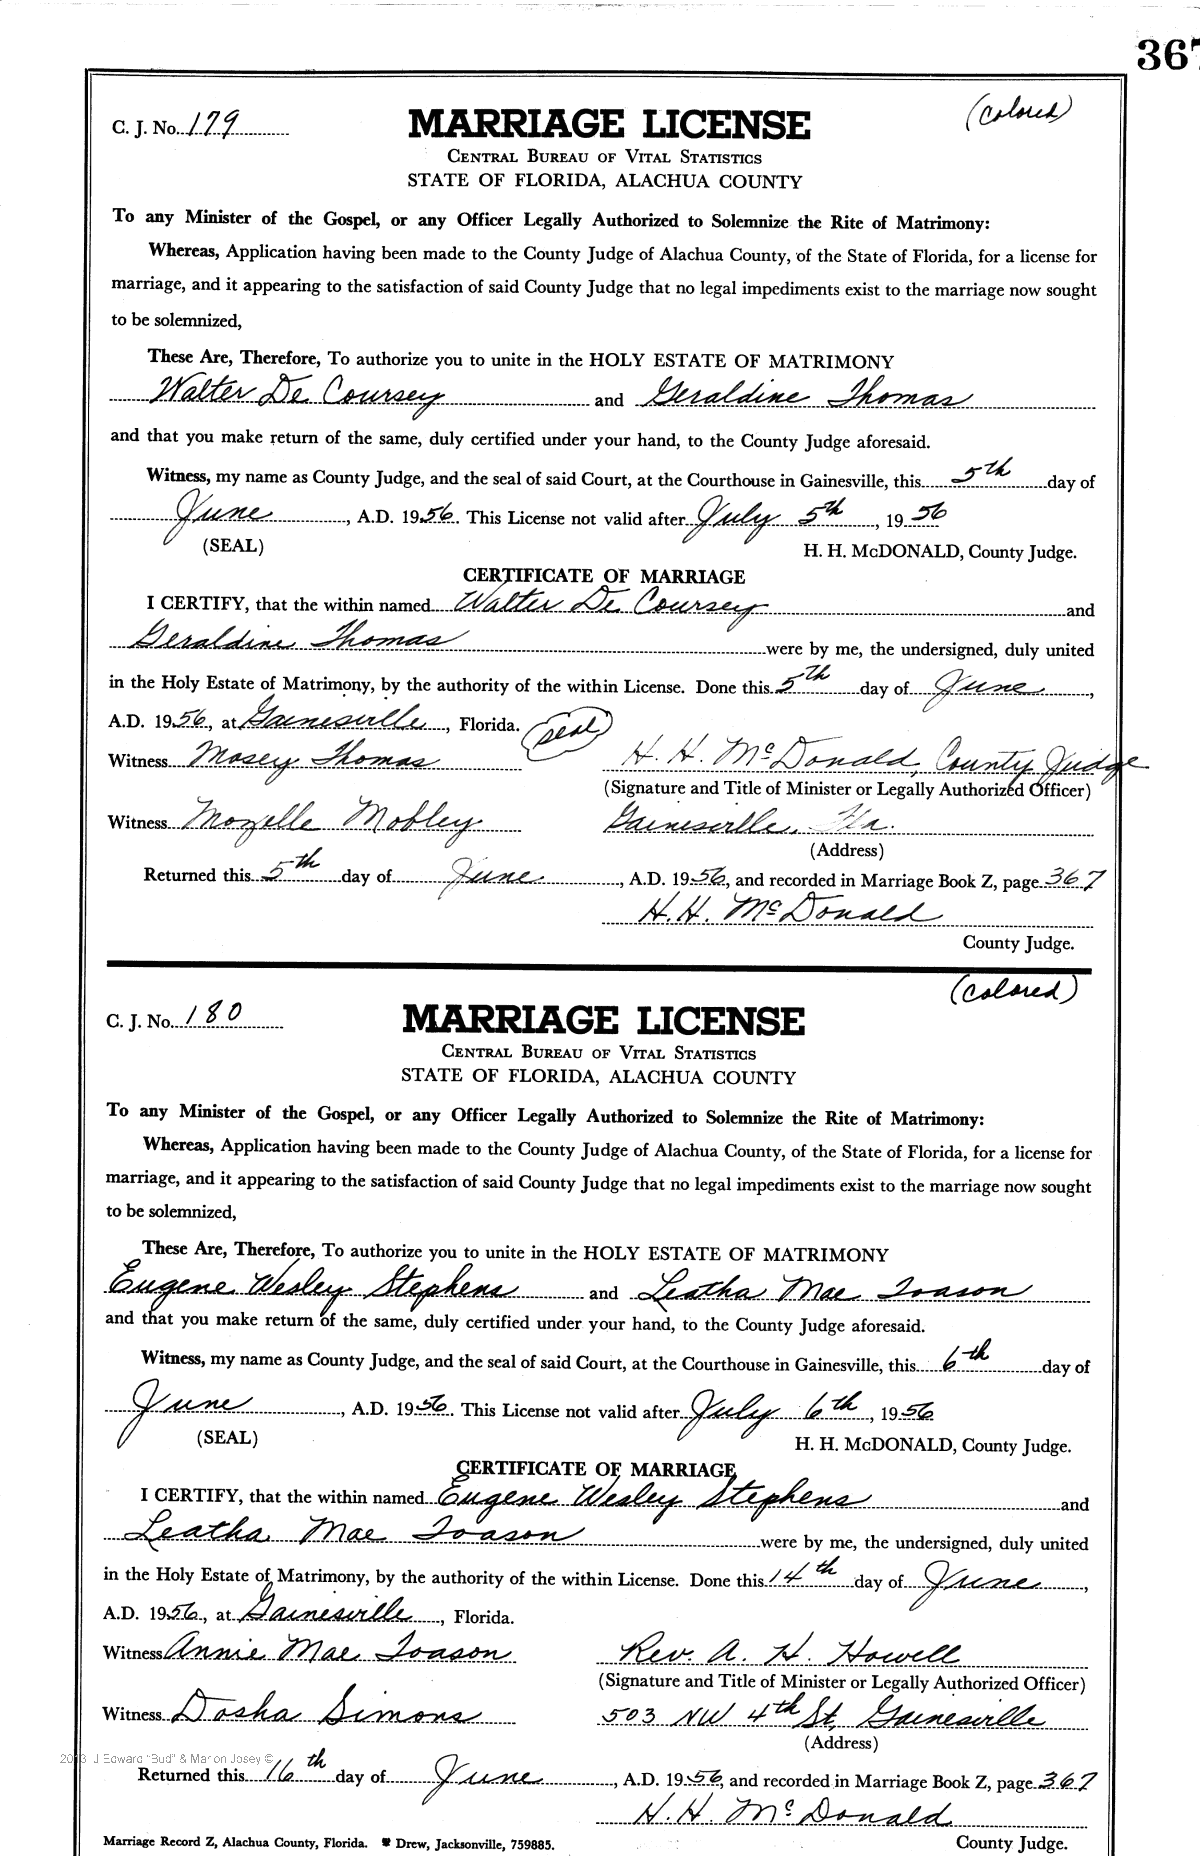 367
C. J. No. 179
(colored)
MARRIAGE LICENSE
CENTRAL BUREAU OF VITAL STATISTICS
STATE OF FLORIDA, ALACHUA COUNTY
To any Minister of the Gospel, or any Officer Legally Authorized to Solemnize the Rite of Matrimony:
Whereas, Application having been made to the County Judge of Alachua County, of the State of Florida, for a license for
marriage, and it appearing to the satisfaction of said County Judge that no legal impediments exist to the marriage now sought
to be solemnized,
These Are, Therefore, To authorize you to unite in the HOLY ESTATE OF MATRIMONY
Walter De Coursey and Geraldine Thomas
and that you make return of the same, duly certified under your hand, to the County Judge aforesaid.
Witness, my name as County Judge, and the seal of said Court, at the Courthouse in Gainesville, this 5th day of
June, A.D. 1956. This License not valid after July 5th, 1956
(SEAL) H. H. McDONALD, County Judge.
CERTIFICATE OF MARRIAGE
I CERTIFY, that the within named Walter De Coursey and
Geraldine Thomas were by me, the undersigned, duly united
in the Holy Estate of Matrimony, by the authority of the within License. Done this 5th day of June,
A.D. 1956, at Gainesville, Florida. (seal)
Witness Mosey Thomas H. H. McDonald, County Judge
(Signature and Title of Minister or Legally Authorized Officer)
Witness Mozelle Mobley Gainesville, Fla.
(Address)
Returned this 5th day of June, A.D. 1956, and recorded in Marriage Book Z, page 367
H. H. McDonald
County Judge.
(colored)
C. J. No. 180
MARRIAGE LICENSE
CENTRAL BUREAU OF VITAL STATISTICS
STATE OF FLORIDA, ALACHUA COUNTY
To any Minister of the Gospel, or any Officer Legally Authorized to Solemnize the Rite of Matrimony:
Whereas, Application having been made to the County Judge of Alachua County, of the State of Florida, for a license for
marriage, and it appearing to the satisfaction of said County Judge that no legal impediments exist to the marriage now sought
to be solemnized,
These Are, Therefore, To authorize you to unite in the HOLY ESTATE OF MATRIMONY
Eugene Wesley Stephens and Leatha Mae Toason
and that you make return of the same, duly certified under your hand, to the County Judge aforesaid.
Witness, my name as County Judge, and the seal of said Court, at the Courthouse in Gainesville, this 6th day of
June, A.D. 1956. This License not valid after July 6th, 1956
(SEAL) H. H. McDONALD, County Judge.
CERTIFICATE OF MARRIAGE
I CERTIFY, that the within named Eugene Wesley Stephens and
Leatha Mae Toason were by me, the undersigned, duly united
in the Holy Estate of Matrimony, by the authority of the within License. Done this 14th day of June,
A.D. 1956, at Gainesville, Florida.
Witness Annie Mae Toason Rev. A. H. Howell
(Signature and Title of Minister or Legally Authorized Officer)
Witness Dosha Simons 503 NW 4th St, Gainesville
(Address)
2013 J Edward "Bud" & Marion Josey ©
Returned this 16th day of June, A.D. 1956, and recorded in Marriage Book Z, page 367
H. H. McDonald
Marriage Record Z, Alachua County, Florida. Drew, Jacksonville, 759885. County Judge.